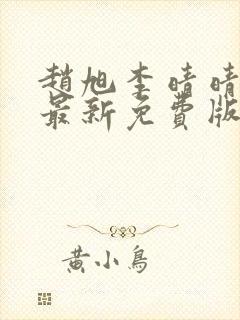 趙旭李晴晴
最新免費版
黃小鳥